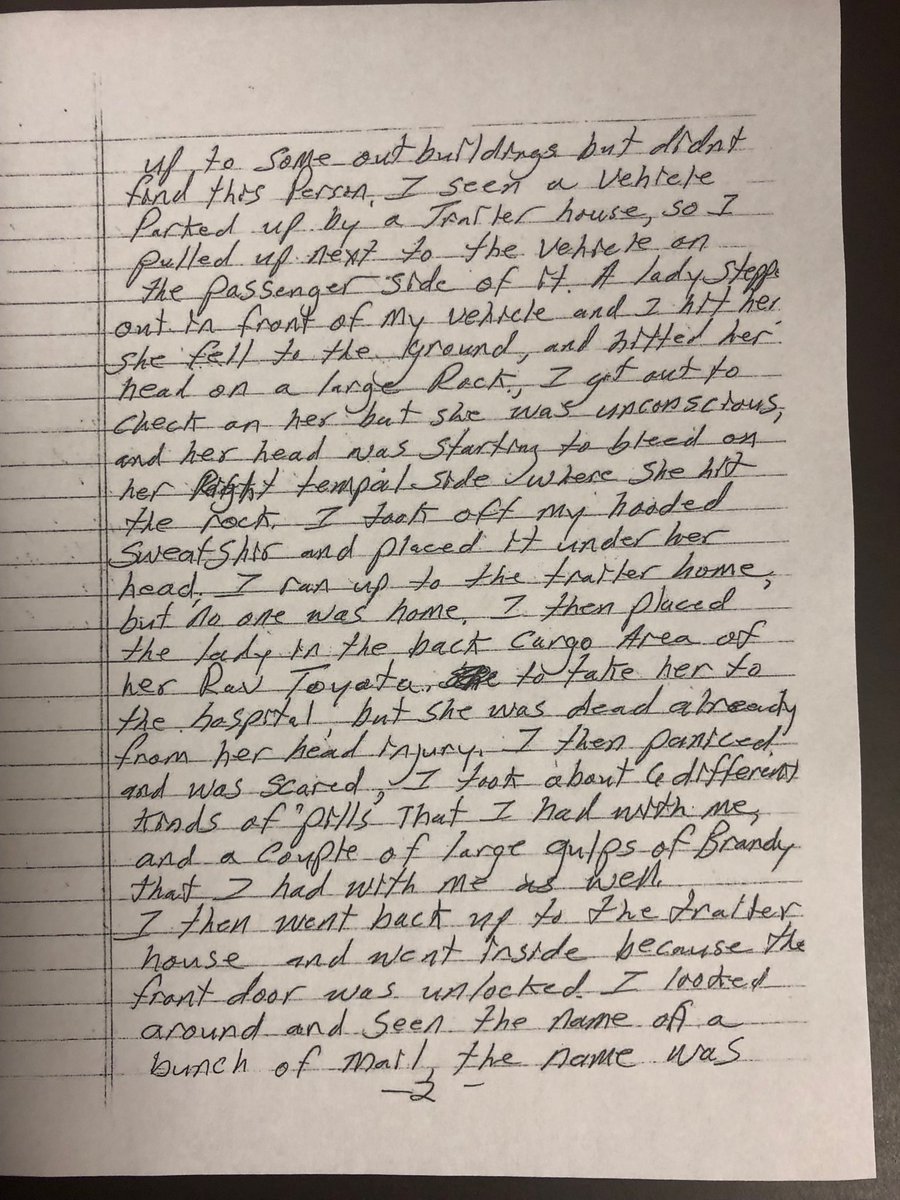 up to some outbuildings but didnt
find this Person. I seen a vehicle
Parked up by a Trailer house, so I
pulled up next to the vehicle on
the passenger side of it. A lady steppe
out in front of my vehicle and I hit her
she fell to the ground, and hitted her
head on a large Rock, I got out to
check on her but she was unconscious,
and her head was starting to bleed on
her Right tempal side where she hit
the rock. I took off my hooded
sweatshir and placed it under her
head, I ran up to the trailer home,
but no one was home. I then placed
the lady in the back Cargo Area of
her Rav Toyota. to take her to
the hospital but she was dead already
from her head injury. I then paniced
and was scared, I took about 6 different
kinds of "pills" That I had with me,
and a couple of large gulps of Brandy
that I had with me as well.
I then went back up to the trailer
house and went inside because the
front door was unlocked. I looked
around and seen the name on a
bunch of mail, the name was
-2-